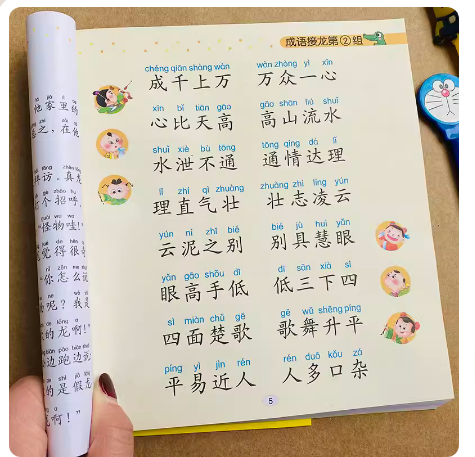 成语接龙第②组
chéng qiān shàng wàn wàn zhòng yì xīn
成千上万 万众一心
xīn bǐ tiān gāo gāo shān liú shuǐ
心比天高 高山流水
shuǐ xiè bù tōng tōng qíng dá lǐ
水泄不通 通情达理
lǐ zhí qì zhuàng zhuàng zhì líng yún
理直气壮 壮志凌云
yún ní zhī bié bié jù huì yǎn
云泥之别 别具慧眼
yǎn gāo shǒu dī dī sān xià sì
眼高手低 低三下四
sì miàn chǔ gē gē wǔ shēng píng
四面楚歌 歌舞升平
píng yì jìn rén rén duō kǒu zá
平易近人 人多口杂
5
家里的
之，在他
拜访。真
个招呼，
“怪物哇！”
觉得很
“你怎么说
呢？我是
的龙啊！”
边跑边说
的是假龙
啊！”